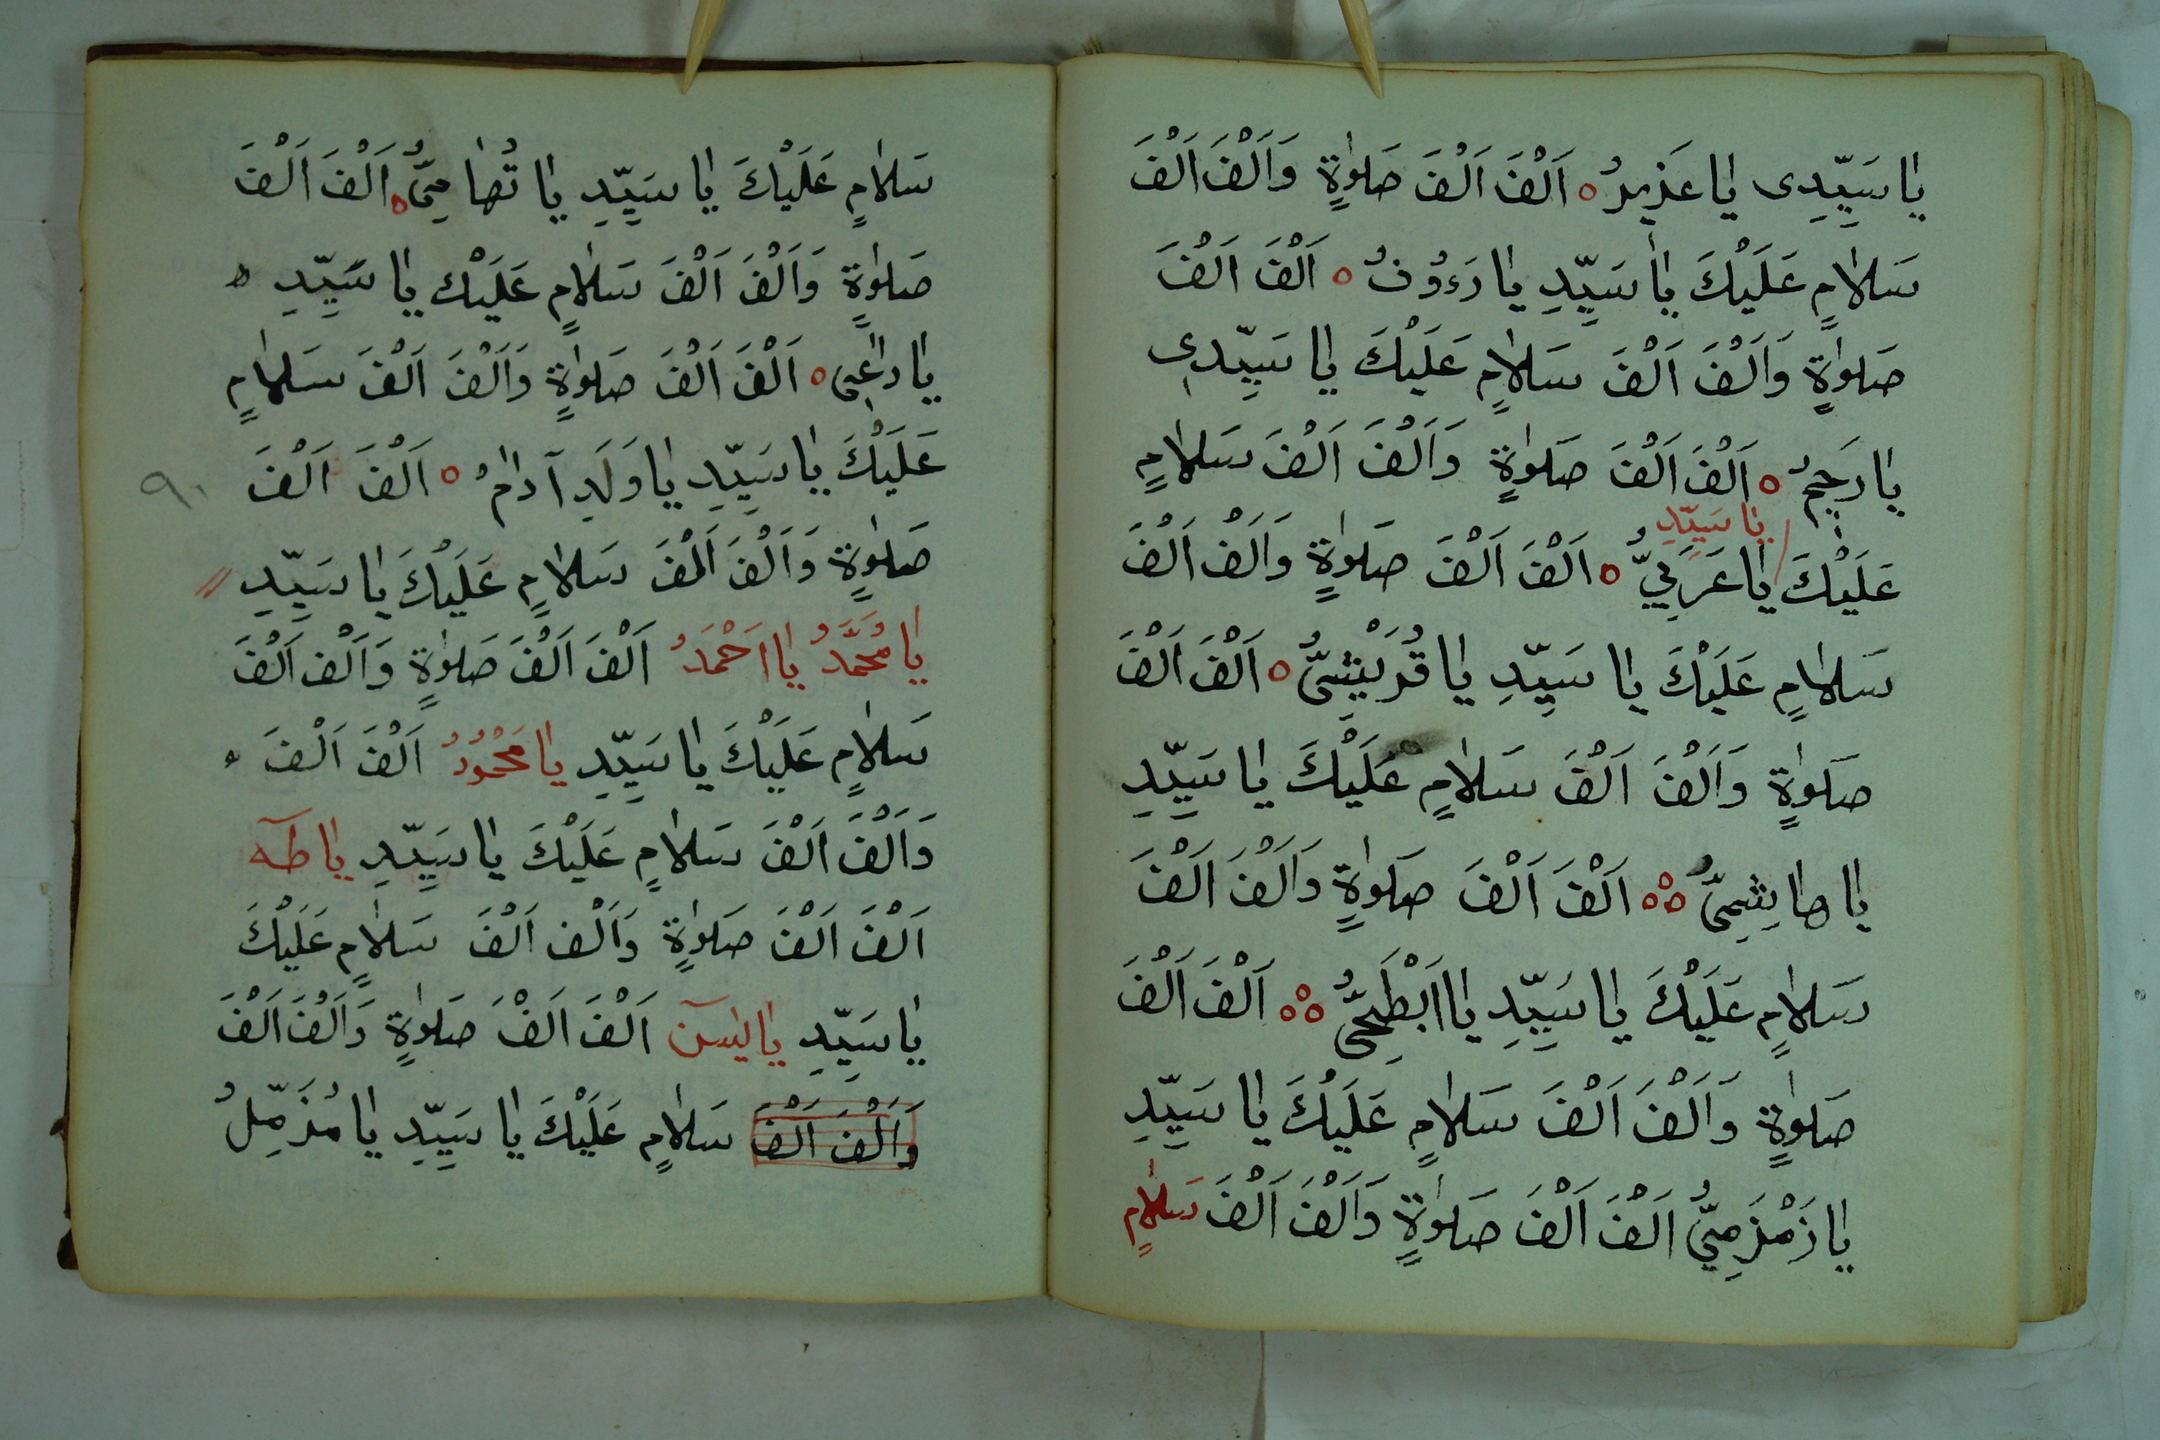 يٰا سَيِّدِى يٰا عَزِيزُ ه اَلْفَ اَلْفَ صَلٰوةٍ وَاَلْفَ اَلْفَ
سَلاٰمٍ عَلَيْكَ يٰا سَيِّدِ يٰا رَءُوفُ ه اَلْفَ اَلْفَ
صَلٰوةٍ وَاَلْفَ اَلْفَ سَلاٰمٍ عَلَيْكَ يٰا سَيِّدِى
يٰا رَحِيمُ ه اَلْفَ اَلْفَ صَلٰوةٍ وَاَلْفَ اَلْفَ سَلاٰمٍ
يٰا سَيِّدِ
عَلَيْكَ يٰا عَرَبِيُّ ه اَلْفَ اَلْفَ صَلٰوةٍ وَاَلْفَ اَلْفَ
سَلاٰمٍ عَلَيْكَ يٰا سَيِّدِ يٰا قُرَيْشِىُّ ه اَلْفَ اَلْفَ
صَلٰوةٍ وَاَلْفَ اَلْفَ سَلاٰمٍ عَلَيْكَ يٰا سَيِّدِ
يٰا هٰاشِمِىُّ ه اَلْفَ اَلْفَ صَلٰوةٍ وَاَلْفَ اَلْفَ
سَلاٰمٍ عَلَيْكَ يٰا سَيِّدِ يٰا اَبْطَحِىُّ ه اَلْفَ اَلْفَ
صَلٰوةٍ وَاَلْفَ اَلْفَ سَلاٰمٍ عَلَيْكَ يٰا سَيِّدِ
يٰا زَمْزَمِىُّ اَلْفَ اَلْفَ صَلٰوةٍ وَاَلْفَ اَلْفَ سَلاٰمٍ
سَلاٰمٍ عَلَيْكَ يٰا سَيِّدِ يٰا تُهٰامِىُّ ه اَلْفَ اَلْفَ
صَلٰوةٍ وَاَلْفَ اَلْفَ سَلاٰمٍ عَلَيْكَ يٰا سَيِّدِ ه
يٰا دٰاعِى ه اَلْفَ اَلْفَ صَلٰوةٍ وَاَلْفَ اَلْفَ سَلاٰمٍ
عَلَيْكَ يٰا سَيِّدِ يٰا وَلَدِ آدٰمُ ه اَلْفَ اَلْفَ
٩٠
صَلٰوةٍ وَاَلْفَ اَلْفَ سَلاٰمٍ عَلَيْكَ يٰا سَيِّدِ
يٰا مُحَمَّدُ يٰا اَحْمَدُ اَلْفَ اَلْفَ صَلٰوةٍ وَاَلْفَ اَلْفَ
سَلاٰمٍ عَلَيْكَ يٰا سَيِّدِ يٰا مَحْمُودُ اَلْفَ اَلْفَ ه
وَاَلْفَ اَلْفَ سَلاٰمٍ عَلَيْكَ يٰا سَيِّدِ يٰا طٰهٓ
اَلْفَ اَلْفَ صَلٰوةٍ وَاَلْفَ اَلْفَ سَلاٰمٍ عَلَيْكَ
يٰا سَيِّدِ يٰا يٰسٓ اَلْفَ اَلْفَ صَلٰوةٍ وَاَلْفَ اَلْفَ
وَاَلْفَ اَلْفَ سَلاٰمٍ عَلَيْكَ يٰا سَيِّدِ يٰا مُزَمِّلُ